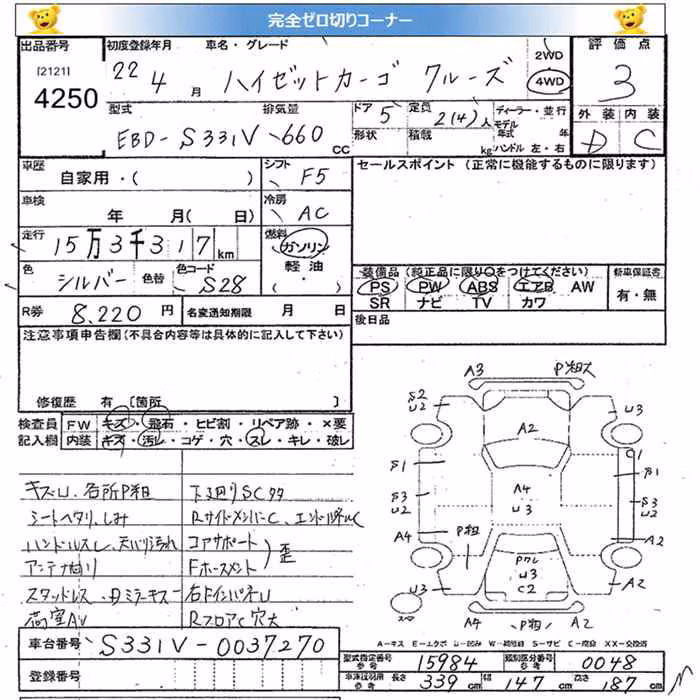 完全ゼロ切りコーナー
出品番号 初度登録年月 車名・グレード 2WD 評価点
[2121] 4250 22 4 月 ハイゼットカーゴ クルーズ 4WD 3
型式 排気量 ドア 5 定員 2(4)人 ディーラー・並行 外装 内装
EBD-S331V 660 CC 形状 積載 kg モデル年式 年 ハンドル 左・右 D C
車歴 自家用・( ) シフト F5 セールスポイント (正常に機能するものに限ります)
車検 年 月( 日) 冷房 AC
走行 15万3千317km 燃料 ガソリン
軽油・( )
色 シルバー 色替 色コード S28 装備品(純正品に限り○をつけてください) 新車保証書
PS PW ABS エアB AW 有・無
SR ナビ TV カワ
R券 8,220 円 名変通知期限 月 日 後日品
注意事項申告欄(不具合内容等は具体的に記入して下さい)
修復歴 有 [箇所 ]
検査員 FW キズ・飛石・ヒビ割・リペア跡・×要
記入欄 内装 キズ・汚レ・コゲ・穴・スレ・キレ・破レ
キズU、各所P粗 下廻りSCタタ
シートヘタリ、しみ RサイドメンバーC、エンドパネルC
ハンドルスレ、天バリ汚れ コアサポート
アンテナ曲り Fホースメント 歪
スタッドレス 右FインパネU
荷室AU RフロアC穴大
A3 P粗大
S2 U2 U3
A2
S1 S1
A4 U3
S3 U2 S3 U2
A4 P粗 A2
Pクレ U3 C2
U3 A2
スペア A4 P粗 A2
A-キズ E-エクボ U-凹み W-補修跡 S-サビ C-腐食 XX-交換済
車台番号 S331V-0037270
型式指定番号 参考 15984 類別区分番号 参考 0048
登録番号
車庫証明用 参考 長さ 339 cm 幅 147 cm 高さ 187 cm